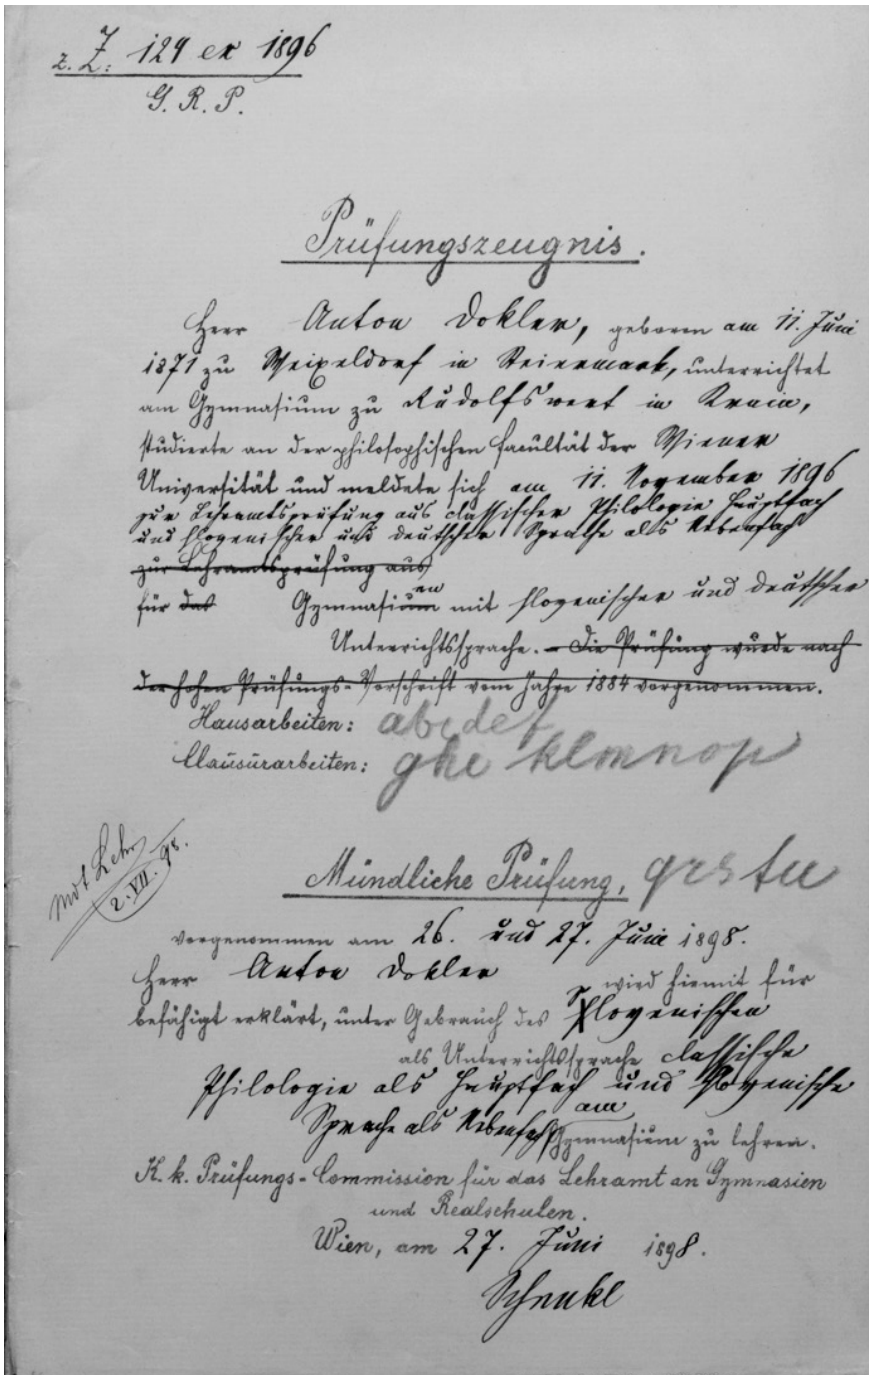 z. Z: 129 ex 1896
G. R. P.
Prüfungszeugnis.
Herr Anton Dokler, geboren am 11. Juni
1871 zu Weixeldorf in Steiermark, unterrichtet
am Gymnasium zu Rudolfswert in Krain,
studierte an der philosophischen Facultät der Wiener
Universität und meldete sich am 11. November 1896
zur Lehramtsprüfung aus classischer Philologie Hauptfach
und slovenischer und deutscher Sprache als Nebenfach
zur Lehramtsprüfung aus
für das Gymnasien mit slovenischer und deutscher
Unterrichtssprache. – Die Prüfung wurde nach
der hohen Prüfungs-Vorschrift vom Jahre 1884 vorgenommen.
Hausarbeiten: abcdef
Clausurarbeiten: ghi klmnop
2. VII. 98.
Mündliche Prüfung, qrstu
vorgenommen am 26. und 27. Juni 1898.
Herr Anton Dokler wird hiemit für
befähigt erklärt, unter Gebrauch des Slovenischen
als Unterrichtssprache classische
Philologie als Hauptfach und slovenische
Sprache als Nebenfach am Gymnasium zu lehren.
K. k. Prüfungs-Commission für das Lehramt an Gymnasien
und Realschulen.
Wien, am 27. Juni 1898.
Schenkl